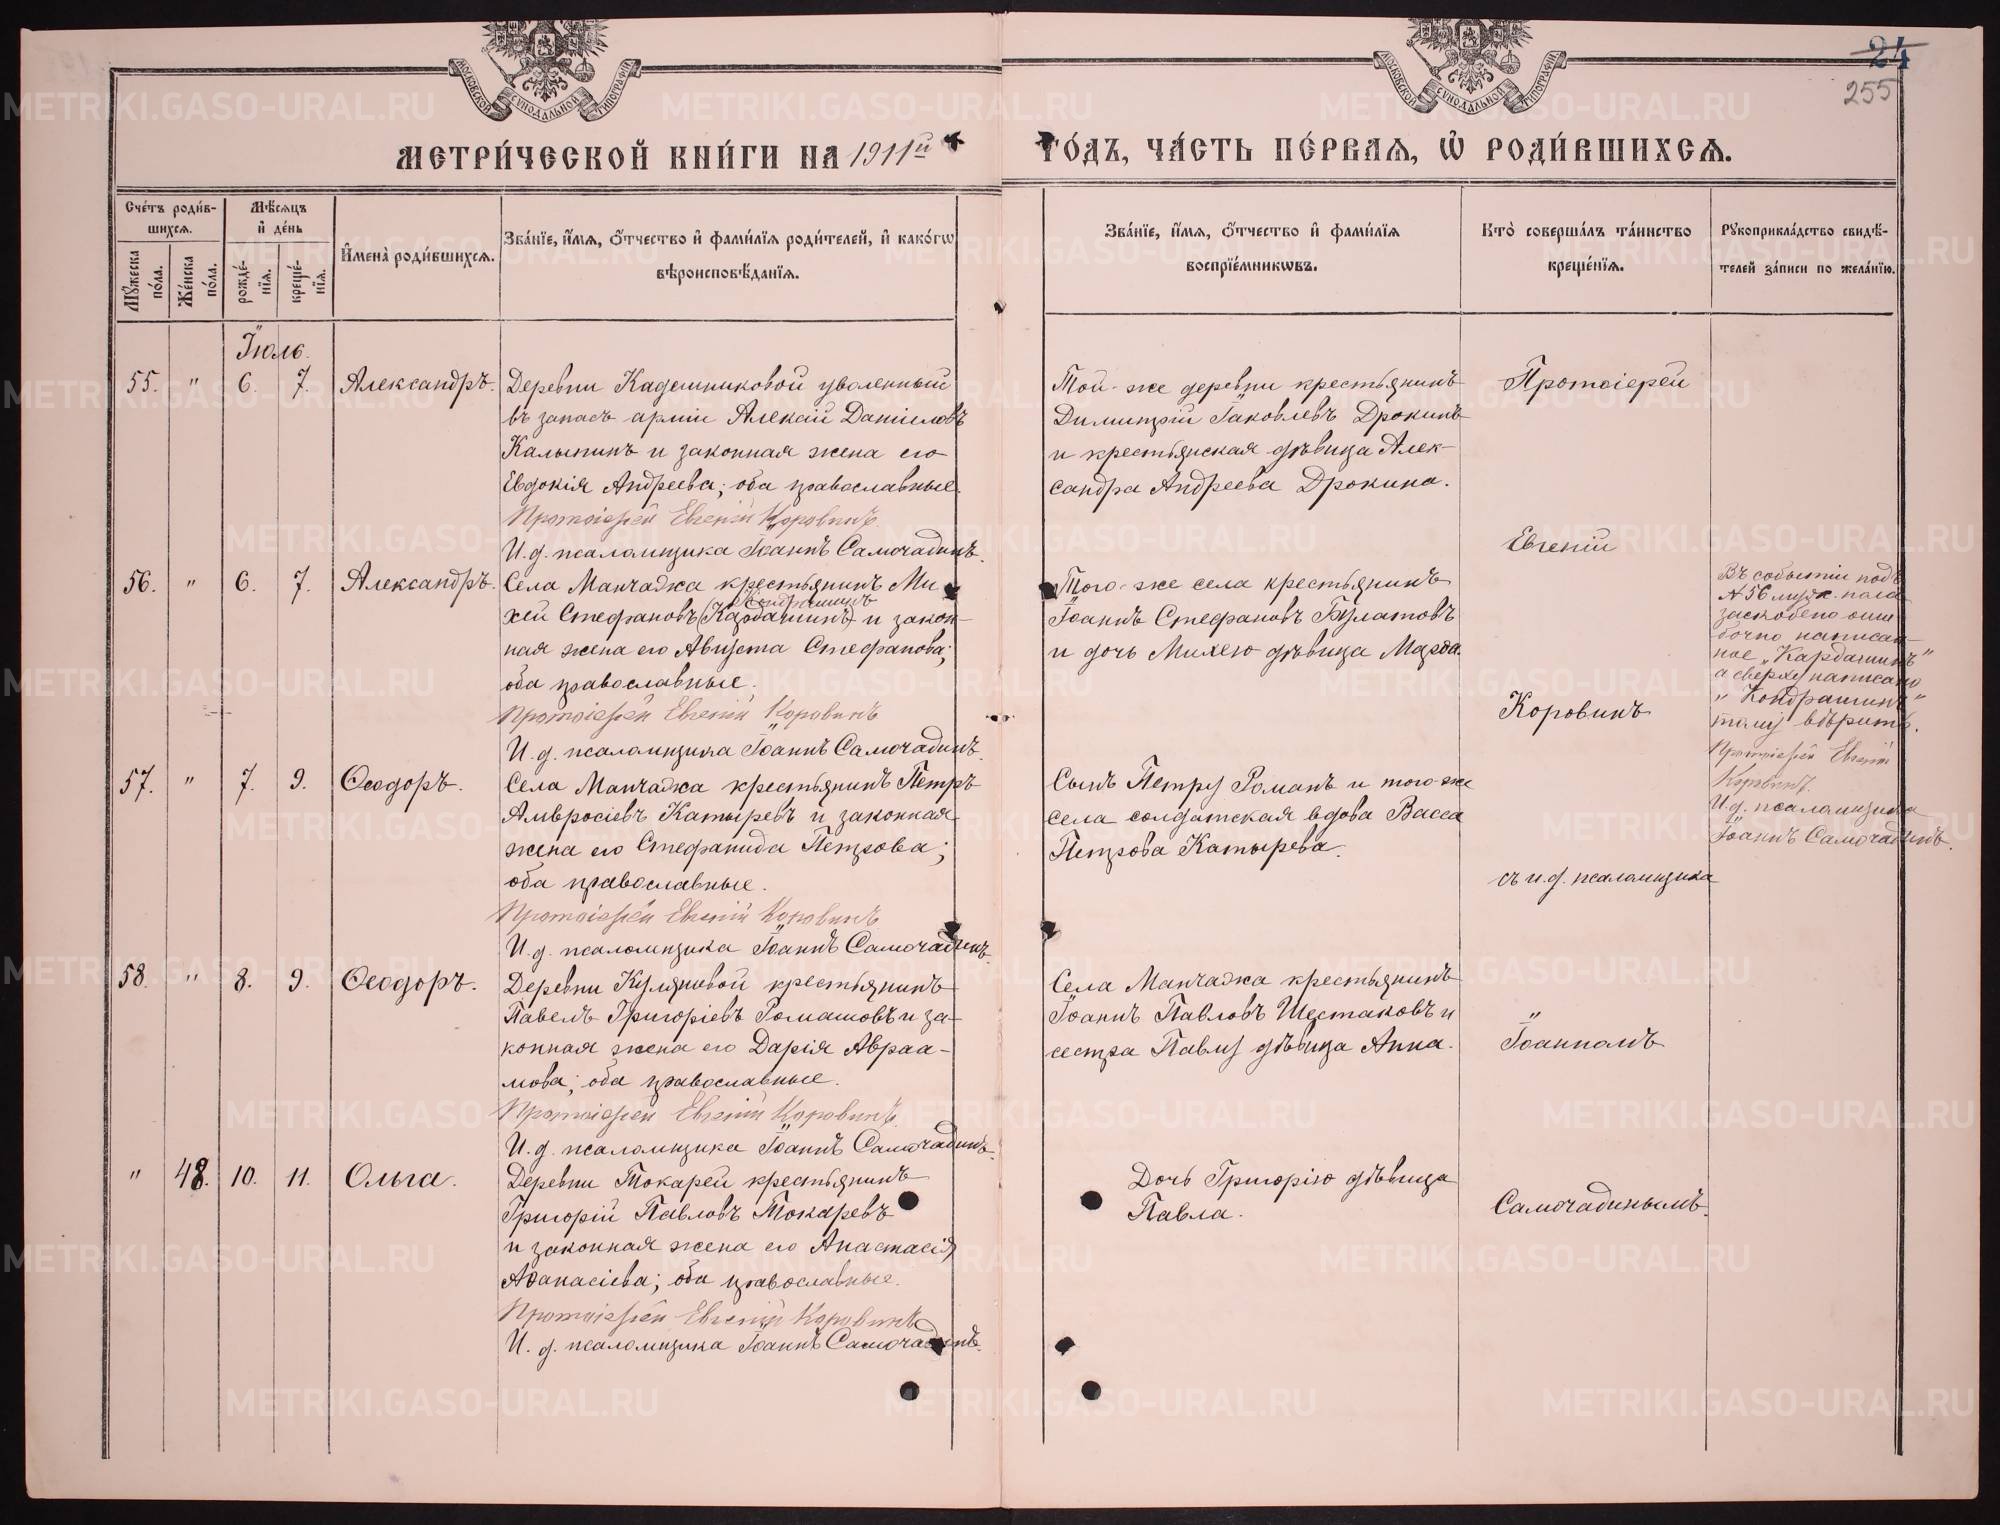 24
255
МОСКОВСКОЙ СѴНОДАЛЬНОЙ ТИПОГРАФІИ
МОСКОВСКОЙ СѴНОДАЛЬНОЙ ТИПОГРАФІИ
МЕТРИ́ЧЕСКОЙ КНИ́ГИ НА 1911й
ГО́ДЪ, ЧА́СТЬ ПЕ́РВАѦ, Ѡ҆ РОДИ́ВШИХСѦ.
Сче́тъ роди́в-
шихсѧ.
Мꙋ́жеска по́ла.
Же́нска по́ла.
Мѣ́сѧцъ и҆ де́нь
рожде́-нїѧ.
креще́-нїѧ.
И҆мена̀ роди́вшихсѧ.
Зва́нїе, и҆́мѧ, ѻ҆́тчество и҆ фами́лїѧ роди́телей, и҆ како́гѡ
вѣроисповѣ́данїѧ.
Зва́нїе, и҆́мѧ, ѻ҆́тчество и҆ фами́лїѧ
воспрїе́мникѡвъ.
Кто̀ соверша́лъ та́инство
креще́нїѧ.
Рꙋкоприкла́дство свидѣ́-
телей за́писи по жела́нїю.
Іюль.
55. " 6. 7. Александръ.
Деревни Кадешниковой уволенный
въ запасъ арміи Алексій Даніиловъ
Калыпинъ и законная жена его
Евдокія Андреева; оба православные.
Протоіерей Евгеній Коровинъ.
И. д. псаломщика Іоаннъ Самочадинъ.
Той-же деревни крестьянинъ
Димитрій Іаковлевъ Дрокинъ
и крестьянская дѣвица Алек-
сандра Андреева Дрокина.
Протоіерей
Евгеній
56. " 6. 7. Александръ.
Села Манчажа крестьянинъ Ми-
Кондрашинъ
хей Стефановъ (Кардашинъ) и закон-
ная жена его Августа Стефанова;
оба православные.
Протоіерей Евгеній Коровинъ
И. д. псаломщика Іоаннъ Самочадинъ.
Того-же села крестьянинъ
Іоаннъ Стефановъ Булатовъ
и дочь Михею дѣвица Марѳа.
Коровинъ
Въ событіи подъ
№ 56 мужк. пола
заскоблено оши
бочно написан-
ное „Кардашинъ"
а сверху написано
„Кондрашинъ"
тому вѣрить.
Протоіерей Евгеній
Коровинъ.
И. д. псаломщика
Іоаннъ Самочадинъ.
57. " 7. 9. Ѳеодоръ.
Села Манчажа крестьянинъ Петръ
Амвросіевъ Катыревъ и законная
жена его Стефанида Петрова;
оба православные.
Протоіерей Евгеній Коровинъ
И. д. псаломщика Іоаннъ Самочадинъ.
Сынъ Петру Романъ и того-же
села солдатская вдова Васса
Петрова Катырева.
съ и. д. псаломщика
58. " 8. 9. Ѳеодоръ.
Деревни Куляшовой крестьянинъ
Павелъ Григоріевъ Ромашовъ и за-
конная жена его Дарія Авраа-
мова; оба православные.
Протоіерей Евгеній Коровинъ.
И. д. псаломщика Іоаннъ Самочадинъ.
Села Манчажа крестьянинъ
Іоаннъ Павловъ Шестаковъ и
сестра Павлу дѣвица Анна.
Іоанномъ
" 48. 10. 11. Ольга.
Деревни Токарей крестьянинъ
Григорій Павловъ Токаревъ
и законная жена его Анастасія
Аѳанасіева; оба православные.
Протоіерей Евгеній Коровинъ
И. д. псаломщика Іоаннъ Самочадинъ.
Дочь Григорію дѣвица
Павла.
Самочадинымъ.